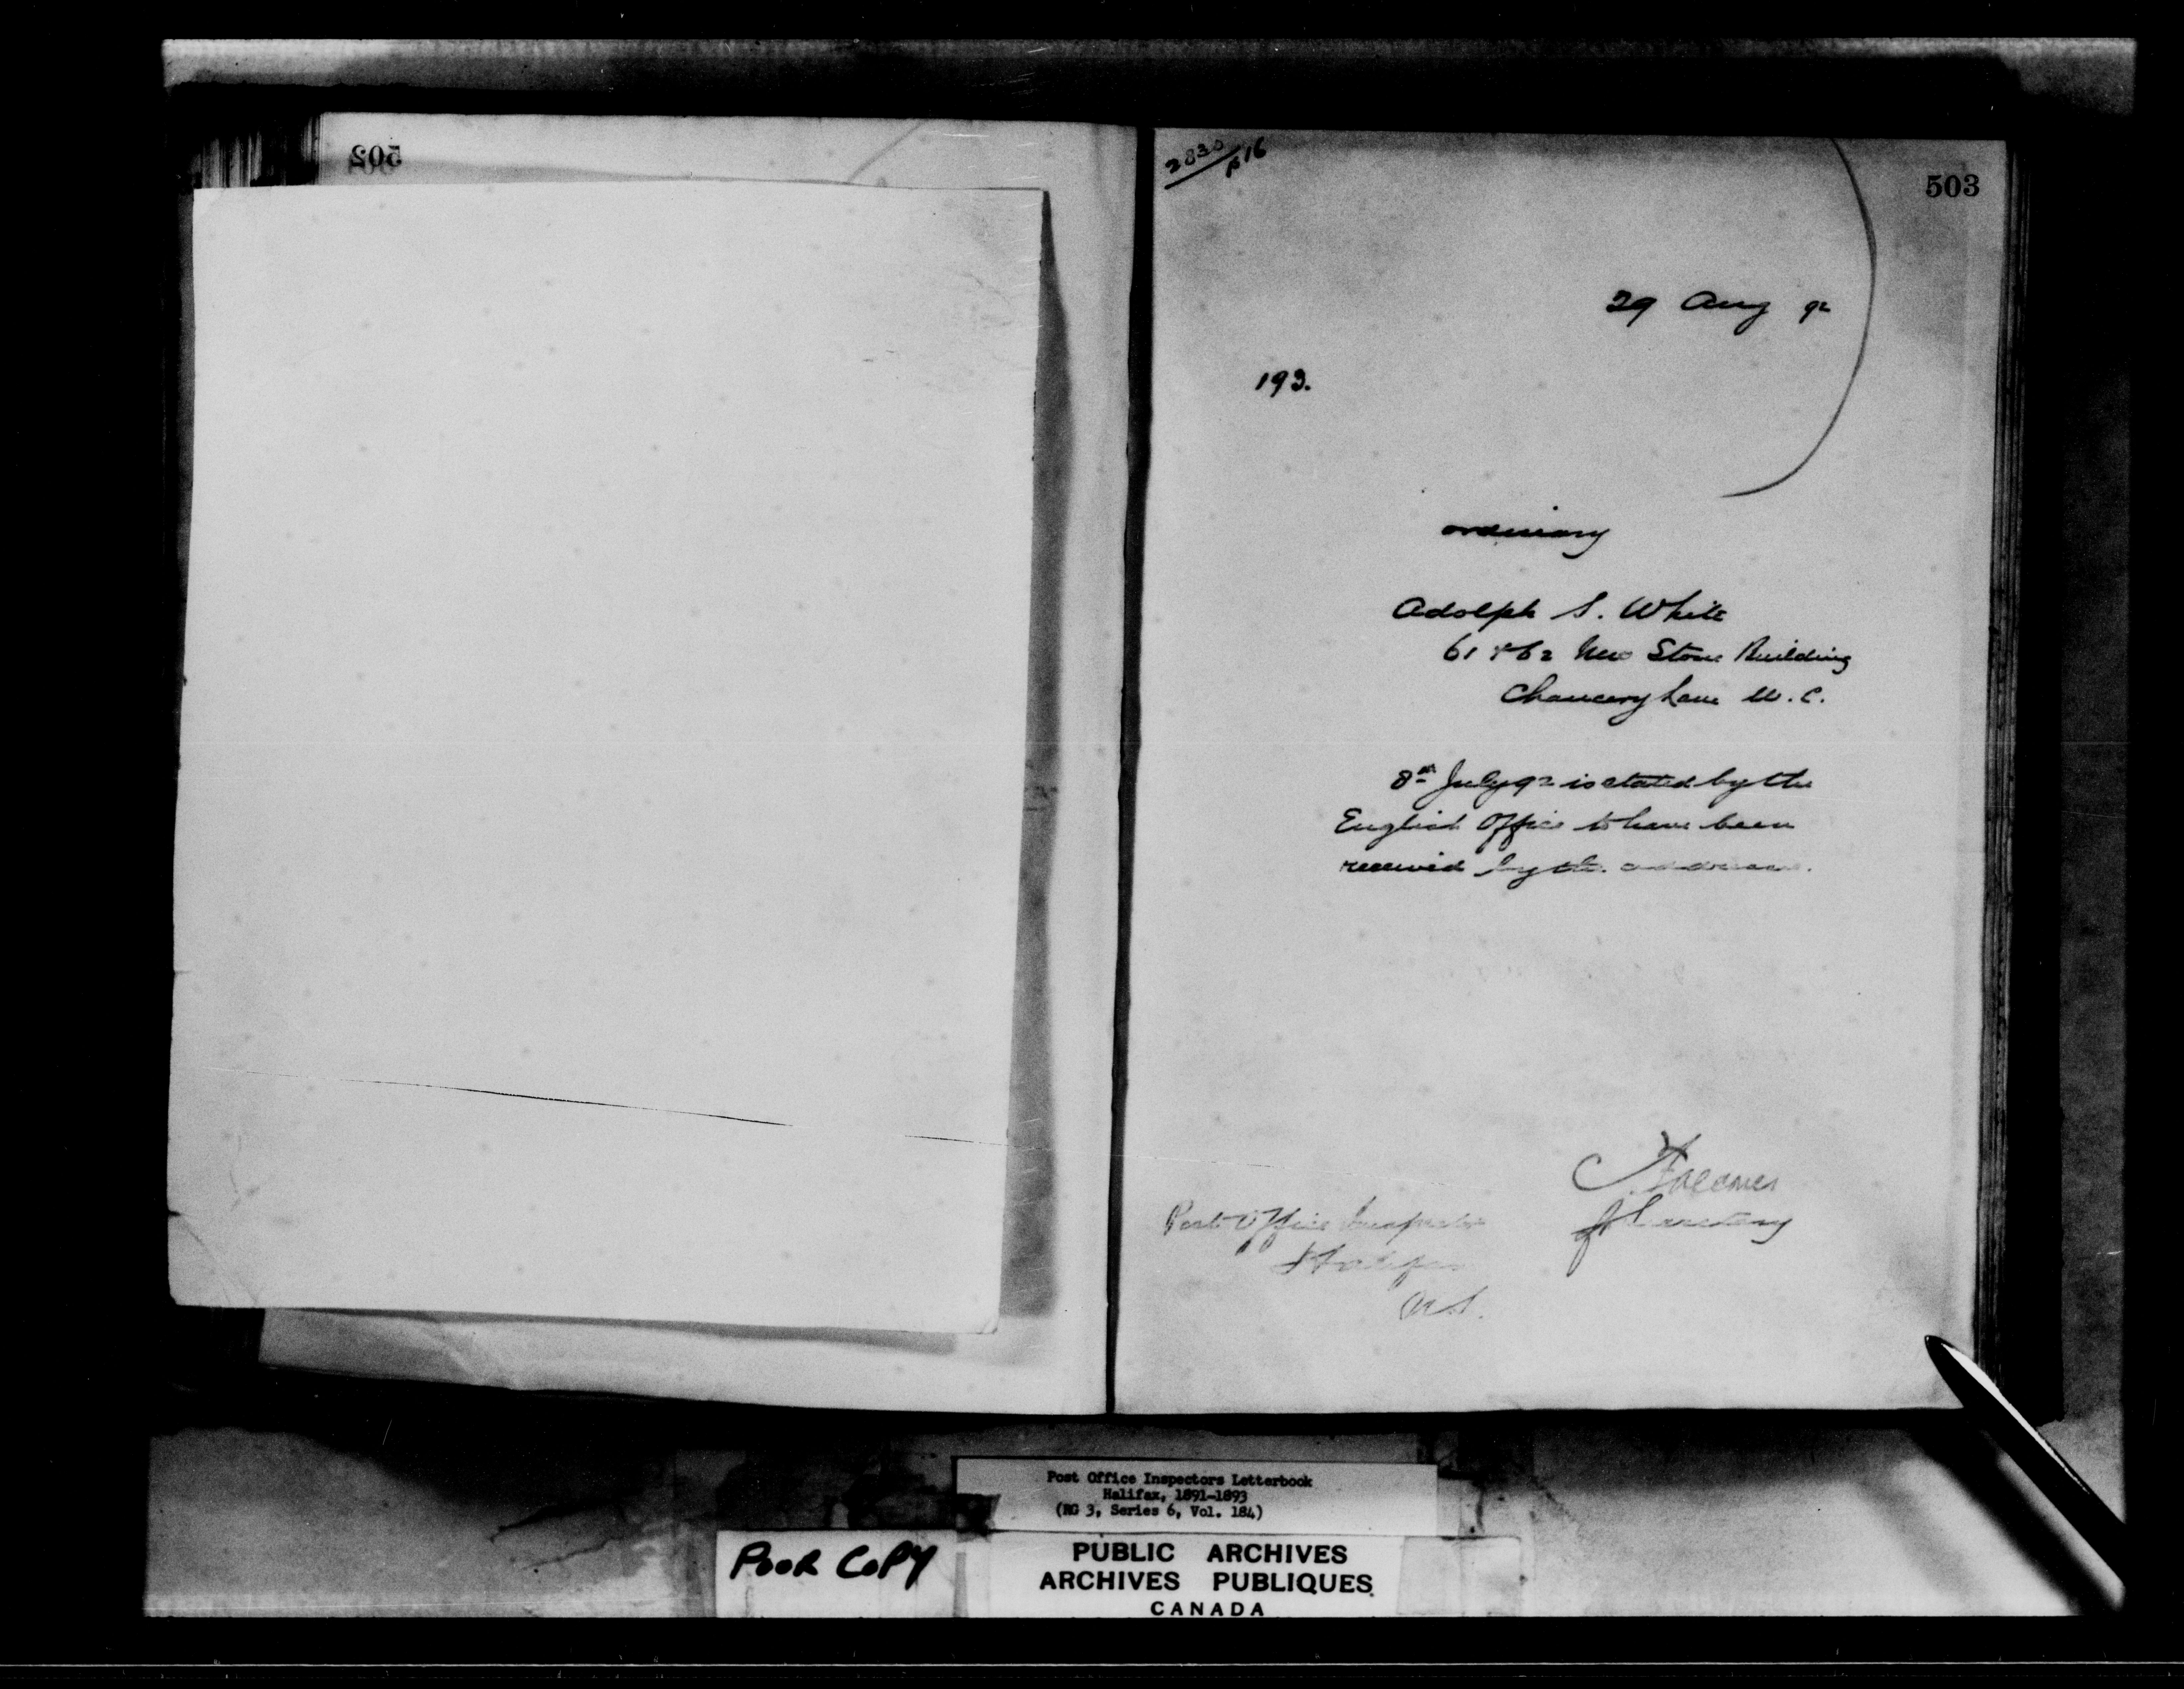 502
2830/p16
503
29 Aug 92
193.
ordinary
Adolph S. White
61 & 62 New Stone Building
Chancery Lane W.C.
8th July 92 is stated by the
English Office to have been
received by the addressee.
for Secretary
Post Office Inspector
Halifax
N.S.
Post Office Inspectors Letterbook
Halifax, 1891-1893
(RG 3, Series 6, Vol. 184)
POOR COPY
PUBLIC ARCHIVES
ARCHIVES PUBLIQUES
CANADA